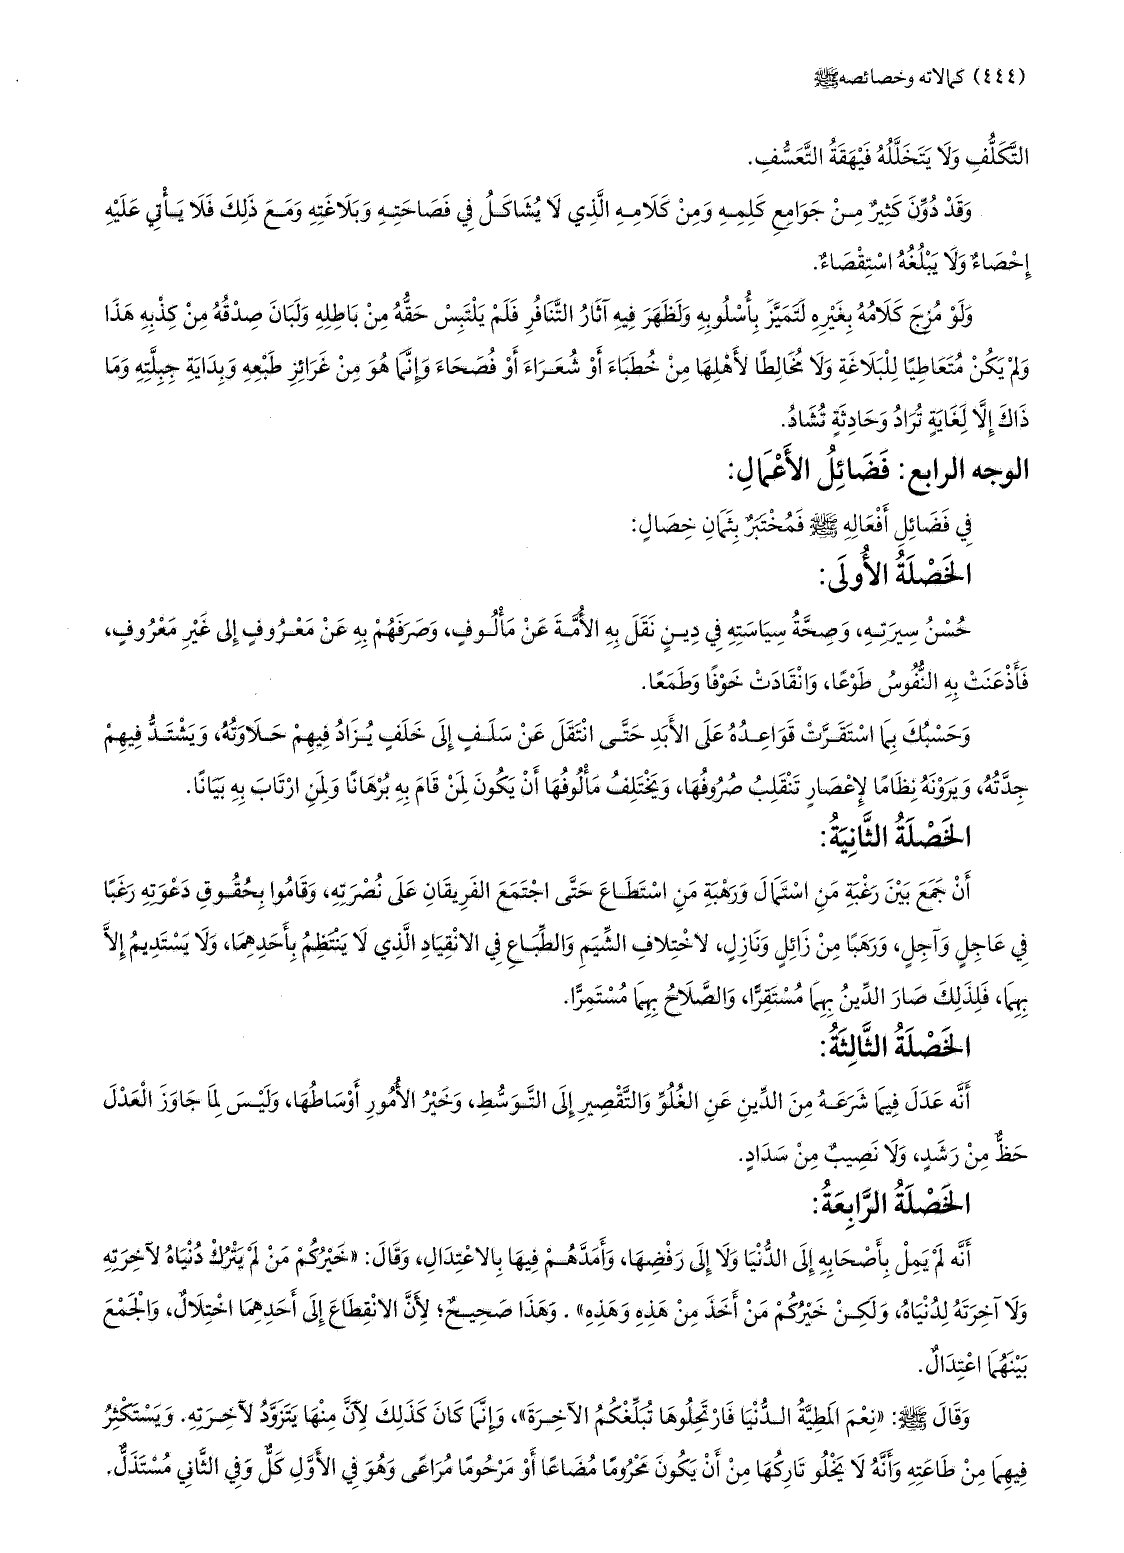 (٤٤٤) كمالاته وخصائصه ﷺ
التَّكَلُّفِ وَلَا يَتَخَلَّلُهُ فَيْهَقَةُ التَّعَسُّفِ.
وَقَدْ دُوِّنَ كَثِيرٌ مِنْ جَوَامِعِ كَلِمِهِ وَمِنْ كَلَامِهِ الَّذِي لَا يُشَاكَلُ فِي فَصَاحَتِهِ وَبَلَاغَتِهِ وَمَعَ ذَلِكَ فَلَا يَأْتِي عَلَيْهِ
إِحْصَاءٌ وَلَا يَبْلُغُهُ اسْتِقْصَاءٌ.
وَلَوْ مُزِجَ كَلَامُهُ بِغَيْرِهِ لَتَمَيَّزَ بِأُسْلُوبِهِ وَلَظَهَرَ فِيهِ آثَارُ التَّنَافُرِ فَلَمْ يَلْتَبِسْ حَقُّهُ مِنْ بَاطِلِهِ وَلَبَانَ صِدْقُهُ مِنْ كِذْبِهِ هَذَا
وَلَمْ يَكُنْ مُتَعَاطِيًا لِلْبَلَاغَةِ وَلَا مُخَالِطًا لأَهْلِهَا مِنْ خُطَبَاءَ أَوْ شُعَرَاءَ أَوْ فُصَحَاءَ وَإِنَّمَا هُوَ مِنْ غَرَائِزِ طَبْعِهِ وَبِدَايَةِ جِبِلَّتِهِ وَمَا
ذَاكَ إِلَّا لِغَايَةٍ تُرَادُ وَحَادِثَةٍ تُشَادُ.
الوجه الرابع: فَضَائِلُ الأَعْمَالِ:
فِي فَضَائِلِ أَفْعَالِهِ ﷺ فَمُخْتَبَرٌ بِثَمَانِ خِصَالٍ:
الخَصْلَةُ الأُولَى:
حُسْنُ سِيرَتِهِ، وَصِحَّةُ سِيَاسَتِهِ فِي دِينٍ نَقَلَ بِهِ الأُمَّةَ عَنْ مَأْلُوفٍ، وَصَرَفَهُمْ بِهِ عَنْ مَعْرُوفٍ إِلى غَيْرِ مَعْرُوفٍ،
فَأَذْعَنَتْ بِهِ النُّفُوسُ طَوْعًا، وَانْقَادَتْ خَوْفًا وَطَمَعًا.
وَحَسْبُكَ بِمَا اسْتَقَرَّتْ قَوَاعِدُهُ عَلَى الأَبَدِ حَتَّى انْتَقَلَ عَنْ سَلَفٍ إِلَى خَلَفٍ يُزَادُ فِيهِمْ حَلَاوَتُهُ، وَيَشْتَدُّ فِيهِمْ
جِدَّتُهُ، وَيَرَوْنَهُ نِظَامًا لإِعْصَارٍ تَنْقَلِبُ صُرُوفُهَا، وَيَخْتَلِفُ مَأْلُوفُهَا أَنْ يَكُونَ لِمَنْ قَامَ بِهِ بُرْهَانًا وَلِمَنِ ارْتَابَ بِهِ بَيَانًا.
الخَصْلَةُ الثَّانِيَةُ:
أَنْ جَمَعَ بَيْنَ رَغْبَةِ مَنِ اسْتَمَالَ وَرَهْبَةِ مَنِ اسْتَطَاعَ حَتَّى اجْتَمَعَ الفَرِيقَانِ عَلَى نُصْرَتِهِ، وَقَامُوا بِحُقُوقِ دَعْوَتِهِ رَغَبًا
فِي عَاجِلٍ وَآجِلٍ، وَرَهَبًا مِنْ زَائِلٍ وَنَازِلٍ، لاخْتِلافِ الشِّيَمِ وَالطِّبَاعِ فِي الانْقِيَادِ الَّذِي لَا يَنْتَظِمُ بِأَحَدِهِمَا، وَلَا يَسْتَدِيمُ إِلاَّ
بِهِمَا، فَلِذَلِكَ صَارَ الدِّينُ بِهِمَا مُسْتَقِرًّا، وَالصَّلَاحُ بِهِمَا مُسْتَمِرًّا.
الخَصْلَةُ الثَّالِثَةُ:
أَنَّه عَدَلَ فِيمَا شَرَعَهُ مِنَ الدِّينِ عَنِ الغُلُوِّ وَالتَّقْصِيرِ إِلَى التَّوَسُّطِ، وَخَيْرُ الأُمُورِ أَوْسَاطُهَا، وَلَيْسَ لِمَا جَاوَزَ الْعَدْلَ
حَظٌّ مِنْ رَشَدٍ، وَلَا نَصِيبٌ مِنْ سَدَادٍ.
الخَصْلَةُ الرَّابِعَةُ:
أَنَّه لَمْ يَمِلْ بِأَصْحَابِهِ إِلَى الدُّنْيَا وَلَا إِلَى رَفْضِهَا، وَأَمَدَّهُمْ فِيهَا بِالاعْتِدَالِ، وَقَالَ: «خَيْرُكُمْ مَنْ لَمْ يَتْرُكْ دُنْيَاهُ لآخِرَتِهِ
وَلَا آخِرَتَهُ لِدُنْيَاهُ، وَلَكِنْ خَيْرُكُمْ مَنْ أَخَذَ مِنْ هَذِهِ وَهَذِهِ» . وَهَذَا صَحِيحٌ؛ لِأَنَّ الانْقِطَاعَ إِلَى أَحَدِهِمَا اخْتِلَالٌ، وَالْجَمْعَ
بَيْنَهُمَا اعْتِدَالٌ.
وَقَالَ ﷺ: «نِعْمَ المَطِيَّةُ الدُّنْيَا فَارْتَحِلُوهَا تُبَلِّغْكُمُ الآخِرَةَ»، وَإِنَّمَا كَانَ كَذَلِكَ لِأَنَّ مِنْهَا يَتَزَوَّدُ لآخِرَتِهِ. وَيَسْتَكْثِرُ
فِيهِمَا مِنْ طَاعَتِهِ وَأَنَّهُ لَا يَخْلُو تَارِكُهَا مِنْ أَنْ يَكُونَ مَحْرُومًا مُضَاعًا أَوْ مَرْحُومًا مُرَاعًى وَهُوَ فِي الأَوَّلِ كَلٌّ وَفِي الثَّانِي مُسْتَذَلٌّ.